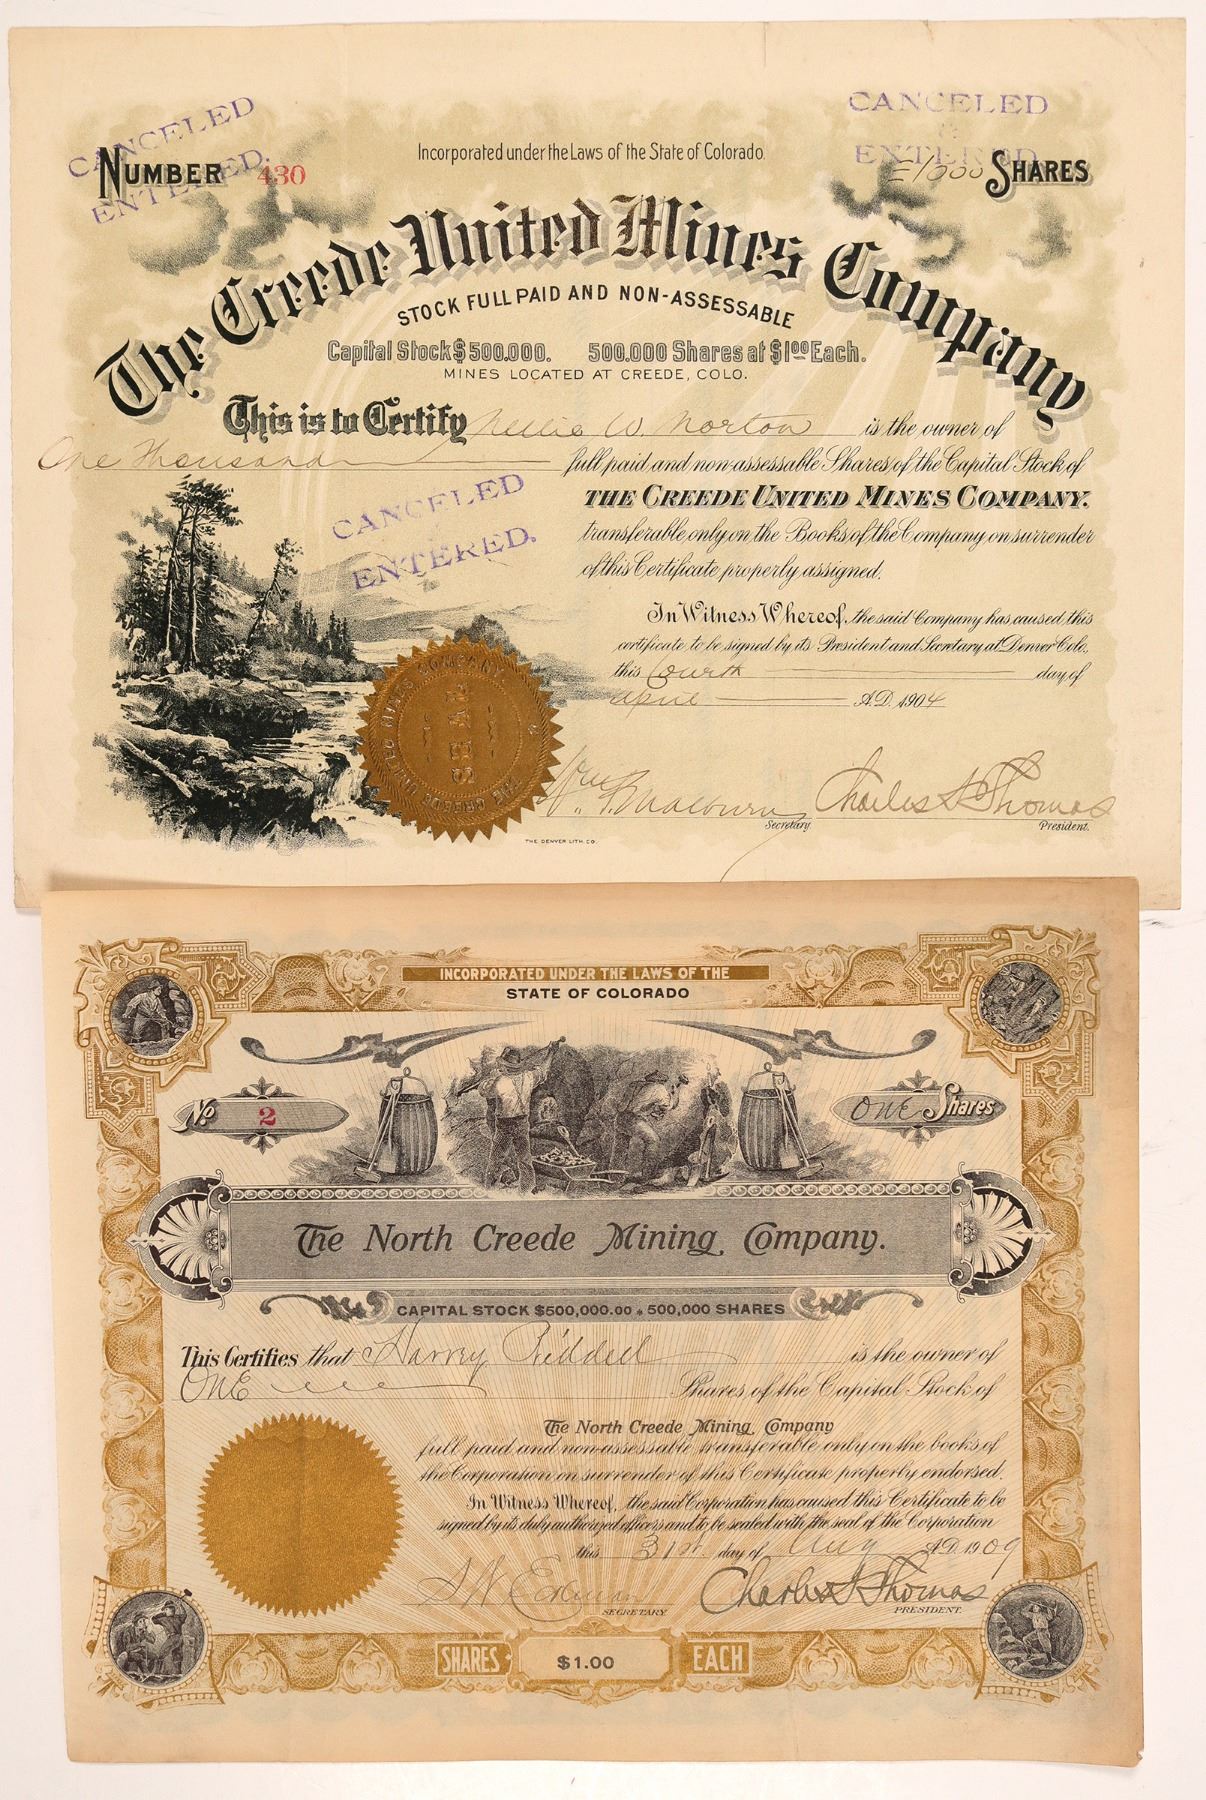 CANCELED
ENTERED.
CANCELED
&
ENTERED
NUMBER 430
Incorporated under the Laws of the State of Colorado.
=1000 SHARES
The Creede United Mines Company
STOCK FULL PAID AND NON-ASSESSABLE
Capital Stock $500.000. 500.000 Shares at $1.00 Each.
MINES LOCATED AT CREEDE, COLO.
This is to Certify Nellie W. Morton is the owner of
One Thousand full paid and non-assessable Shares of the Capital Stock of
THE CREEDE UNITED MINES COMPANY.
CANCELED
ENTERED.
transferable only on the Books of the Company on surrender
of this Certificate properly assigned.
In Witness Whereof, the said Company has caused this
certificate to be signed by its President and Secretary at Denver Colo,
this fourth day of
April A.D. 1904
THE CREEDE UNITED MINES COMPANY
SEAL
Wm. Charles S. Thomas
Secretary. President.
THE DENVER LITH. CO.
INCORPORATED UNDER THE LAWS OF THE
STATE OF COLORADO
No 2
ONE Shares
The North Creede Mining Company.
CAPITAL STOCK $500,000.00 * 500,000 SHARES
This Certifies that Harry is the owner of
ONE Shares of the Capital Stock of
The North Creede Mining Company
full paid and non-assessable transferable only on the books of
the Corporation on surrender of this Certificate properly endorsed.
In Witness Whereof, the said Corporation has caused this Certificate to be
signed by its duly authorized officers and to be sealed with the seal of the Corporation
this 31st. day of Aug A.D. 1909
Charles S. Thomas
SECRETARY PRESIDENT.
SHARES $1.00 EACH